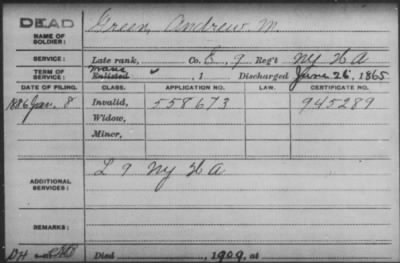 DEAD
NAME OF SOLDIER: Green, Andrew M.
SERVICE: Late rank, Co. E, 9 Reg't NY HA
TERM OF SERVICE: Enlisted , 1 Discharged June 26, 1865
DATE OF FILING. CLASS. APPLICATION NO. LAW. CERTIFICATE NO.
1886 Jan. 8 Invalid, 558673 945289
Widow,
Minor,
ADDITIONAL SERVICES: L 9 NY HA
REMARKS:
Died , 1909, at